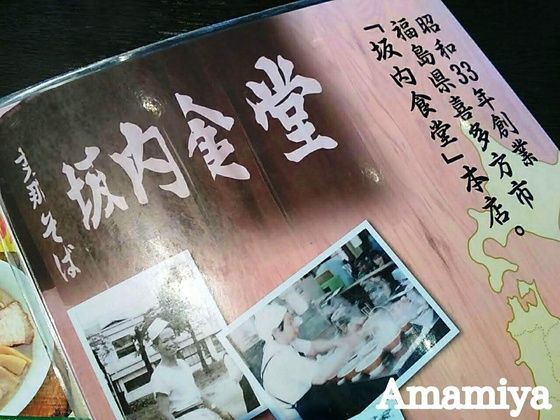 昭和33年創業
福島県喜多方市
「坂内食堂」本店。
坂内食堂
支那そば
Amamiya